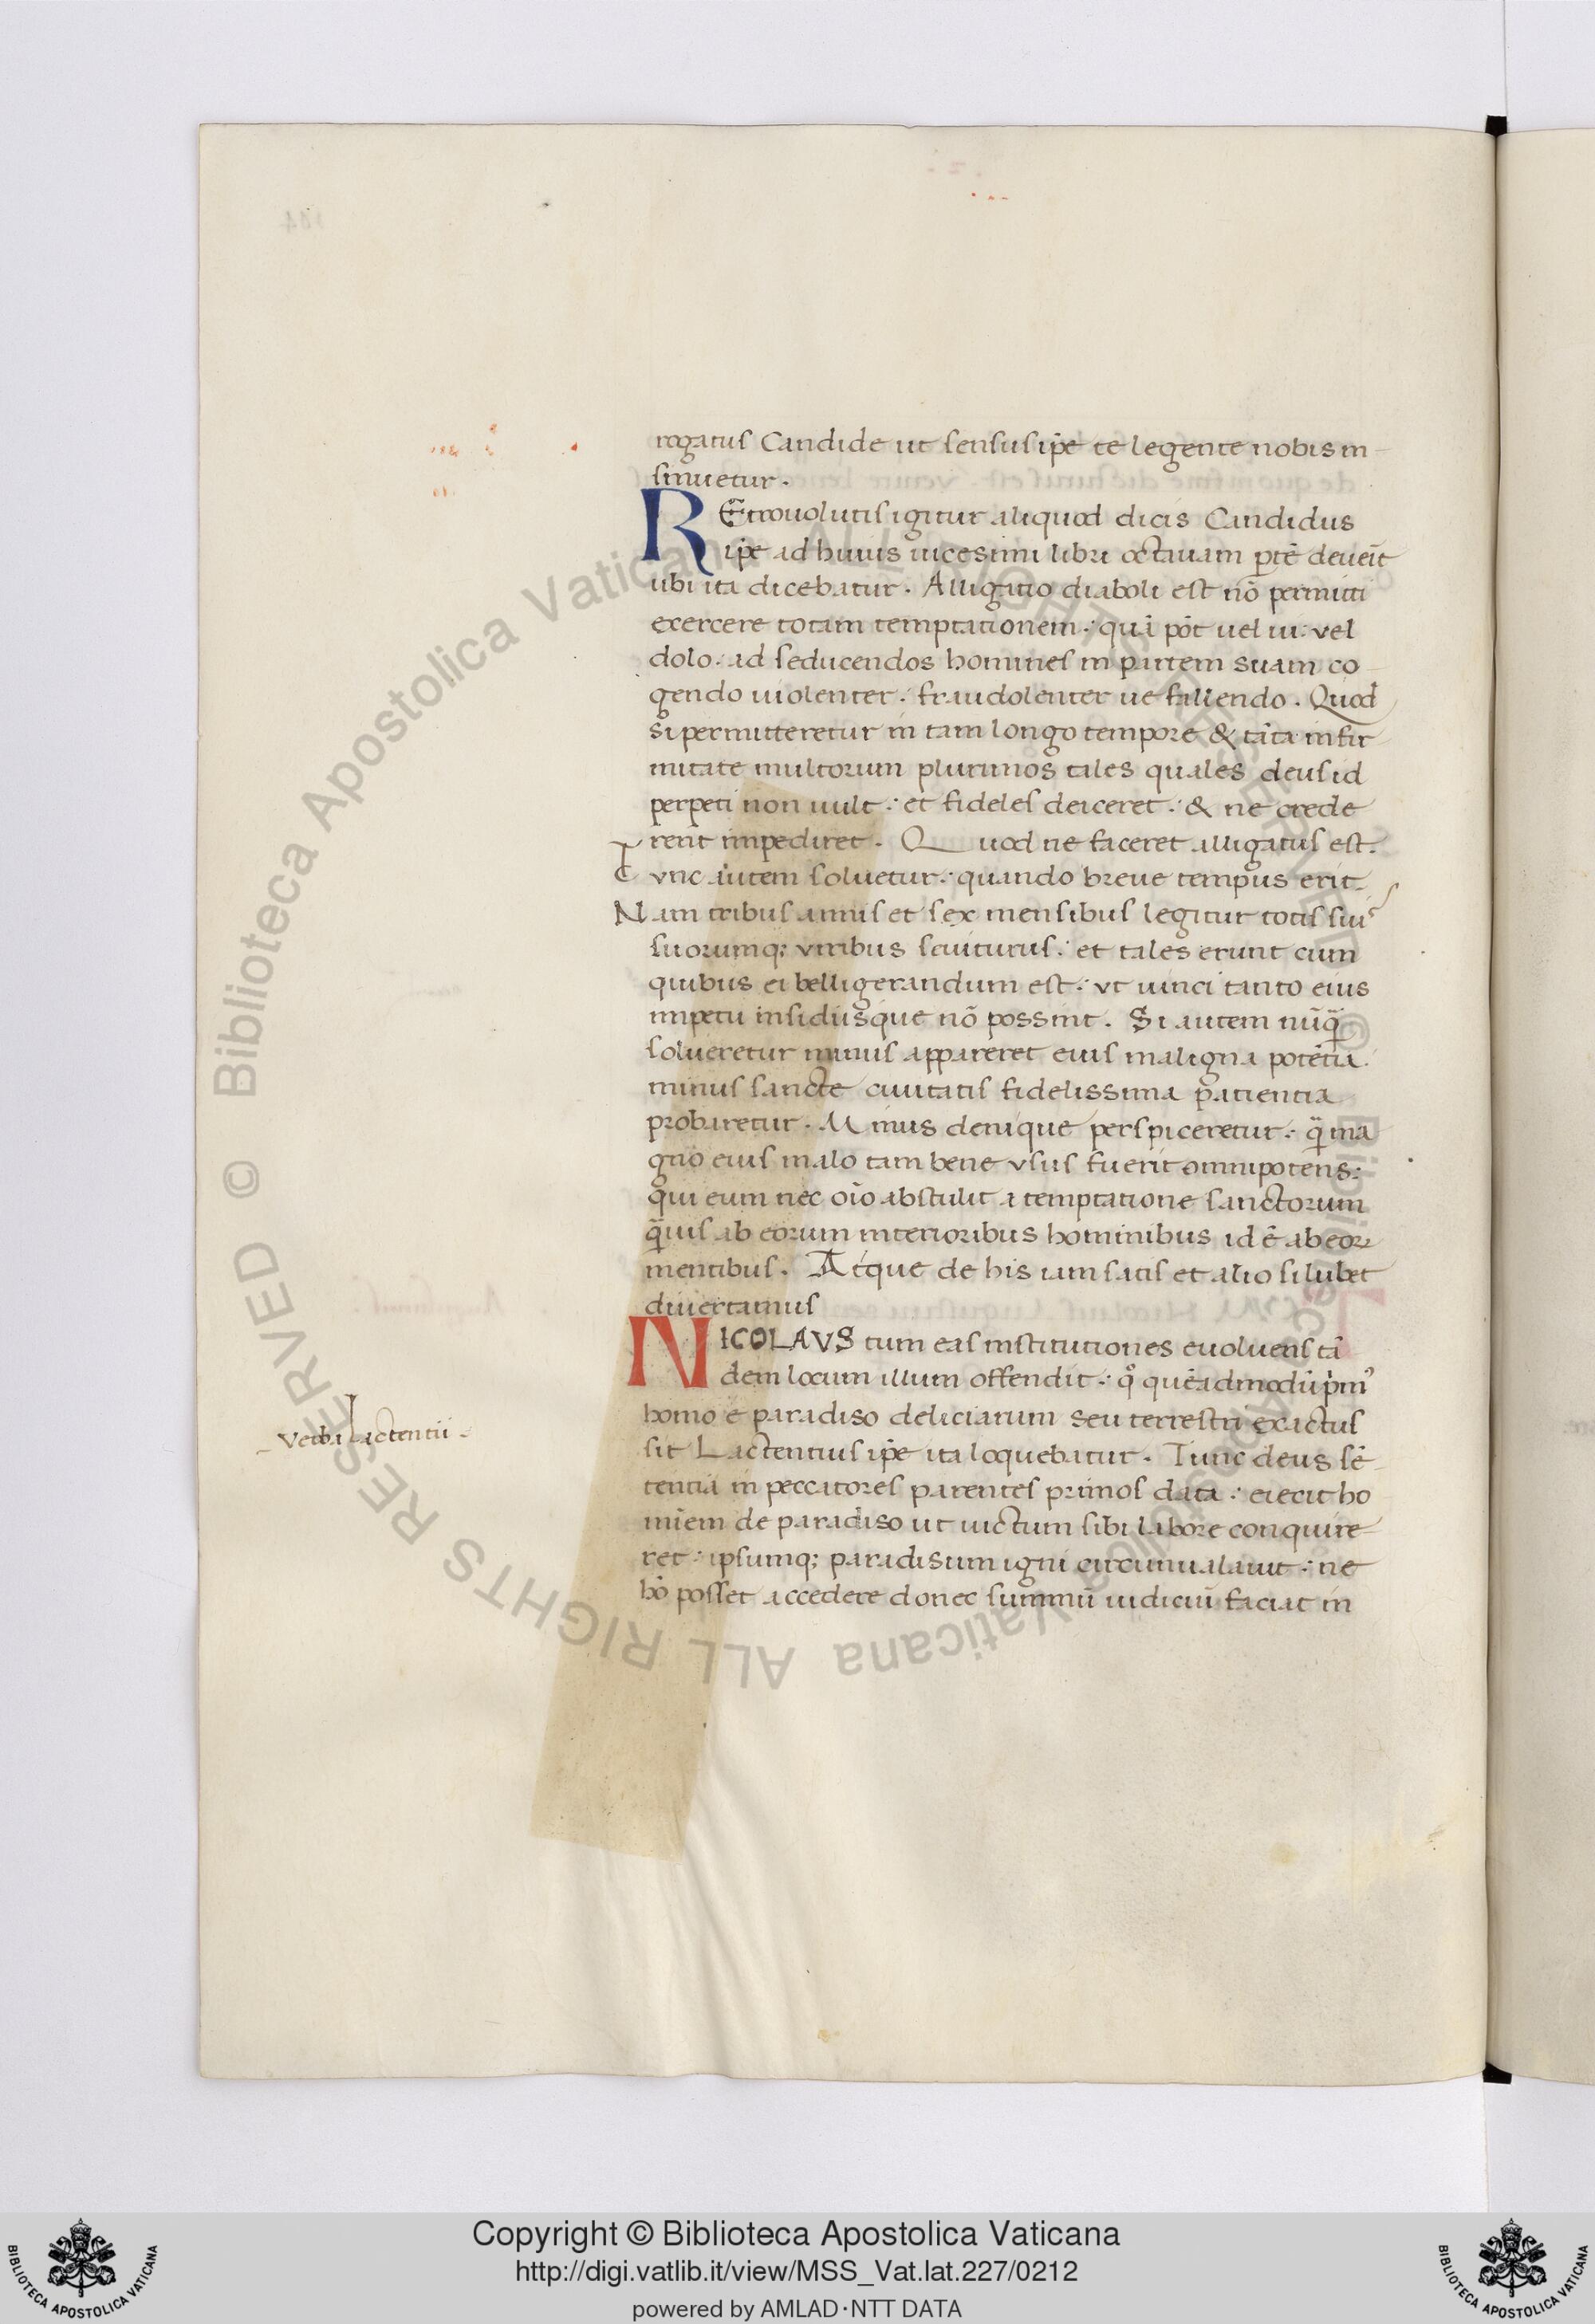 rogatus Candide ut sensus ip̄e te legente nobis in
sinuetur.
REtrouolutis igitur aliquod dicis Candidus
ip̄e ad huius uicesimi libri octauam ꝑtē deueīt
ubi ita dicebatur. Alligatio diaboli est nō permitti
exercere totam temptationem: quā pōt uel ui: vel
dolo: ad seducendos homines in partem suam co
gendo uiolenter: fraudolenter ue fallendo. Quod
si permitteretur in tam longo tempore & tāta infir
mitate multorum plurimos tales quales deus id
perpeti non uult: et fideles deiceret: & ne crede
rent impediret. Quod ne faceret alligatus est.
Tvnc autem soluetur: quando breue tempus erit.
Nam tribus annis et sex mensibus legitur totis suis
suorumq; viribus seuiturus: et tales erunt cum
quibus ei belligerandum est: vt uinci tanto eius
impetu insidiisque nō possint. Si autem nūq̄
solueretur minus appareret eius maligna potētia
minus sancte ciuitatis fidelissima patientia
probaretur. Minus denique perspiceretur: q̄ ma
gno eius malo tam bene vsus fuerit omnipotens:
qui eum nec oīo abstulit a temptatione sanctorum
q̄uis ab eorum interioribus hominibus id ē ab eoꝝ
mentibus. Atque de his iam satis et alio si lubet
diuertamus
NICOLAVS tum eas institutiones euoluens tā
dem locum illum offendit: qͦ quēadmodū pͥmꝰ
homo e paradiso deliciarum seu terrestri exactus
sit Lactentius ip̄e ita loquebatur. Tunc deus sē
tentia in peccatores parentes primos data: eiecit ho
mīem de paradiso ut uictum sibi labore conquire
ret: ipsumq; paradisum igni circumualauit: ne
hō posset accedere donec summū iudiciū faciat in
Verba Lactentii
Copyright © Biblioteca Apostolica Vaticana
http://digi.vatlib.it/view/MSS_Vat.lat.227/0212
powered by AMLAD·NTT DATA
© Biblioteca Apostolica Vaticana ALL RIGHTS RESERVED
© Biblioteca Apostolica Vaticana ALL RIGHTS RESERVED
BIBLIOTECA APOSTOLICA VATICANA
BIBLIOTECA APOSTOLICA VATICANA